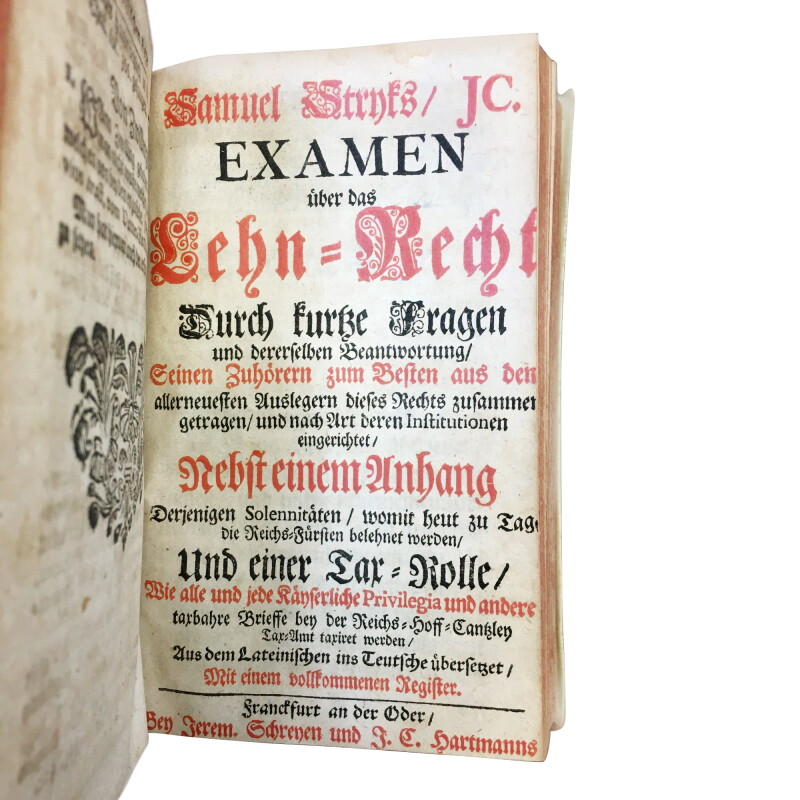 Samuel Stryks/ JC.
EXAMEN
über das
Lehn-Recht
Durch kurtze Fragen
und dererselben Beantwortung/
Seinen Zuhörern zum Besten aus den
allerneuesten Auslegern dieses Rechts zusammen
getragen/ und nach Art deren Institutionen
eingerichtet/
Nebst einem Anhang
Derjenigen Solennitäten/ womit heut zu Tage
die Reichs-Fürsten belehnet werden/
Und einer Tax-Rolle/
Wie alle und jede Käyserliche Privilegia und andere
taxbahre Brieffe bey der Reichs-Hoff-Cantzley
Tax-Amt taxiret werden/
Aus dem Lateinischen ins Teutsche übersetzet/
Mit einem vollkommenen Register.
Franckfurt an der Oder/
Bey Jerem. Schreyen und J. C. Hartmanns